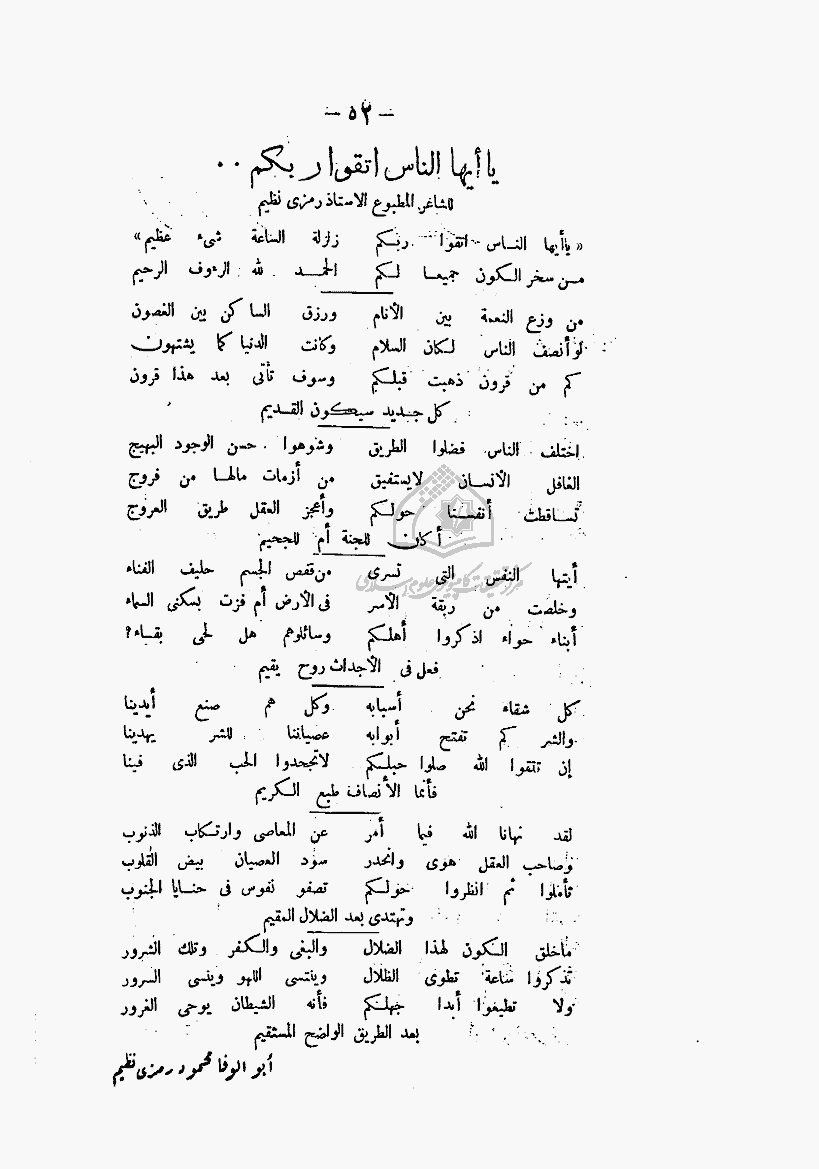 — ٥٢ —
يا أيها الناس اتقوا ربكم ..
للشاعر المطبوع الاستاذ رمزى نظيم
« يا أيها الناس اتقوا ربكم زلزلة الساعة شىء عظيم »
من سخر الكون جميعا لكم الحمد لله الرءوف الرحيم
من وزع النعمة بين الأنام ورزق الساكن بين الغصون
لو أنصف الناس لكان السلام وكانت الدنيا كما يشتهون
كم من قرون ذهبت قبلكم وسوف تأتى بعد هذا قرون
كل جديد سيكون القديم
اختلف الناس فضلوا الطريق وشوهوا حسن الوجود البهيج
الغافل الأنسان لا يستفيق من أزمات مالها من فروج
تساقطت أنفسنا حولكم وأعجز العقل طريق العروج
أكان للجنة أم للجحيم
أيتها النفس التى تسرى من قفص الجسم حليف الفناء
وخلصت من ربقة الأسر فى الأرض أم فزت بسكنى السماء
أبناء حواء اذكروا أهلكم وسائلوهم هل لحى بقاء؟
فعل فى الأجداث روح يقيم
كل شقاء نحن أسبابه وكل هم صنع أيدينا
والشر كم تفتح أبوابه عصياننا للشر يهدينا
إن تتقوا الله صلوا حبلكم لاتجحدوا الحب الذى فينا
فأنما الأنصاف طبع الكريم
لقد نهانا الله فيما أمر عن المعاصى وارتكاب الذنوب
وصاحب العقل هوى وانحدر سود العصيان بيض القلوب
تأملوا ثم انظروا حولكم تصفو نفوس فى حنايا الجنوب
وتهتدى بعد الضلال المقيم
ماخلق الكون لهذا الضلال والبغى والكفر وتلك الشرور
تذكروا ساعة تطوى الظلال وينتسى اللهو وينسى السرور
ولا تطيعوا أبدا جهلكم فأنه الشيطان يوحى الغرور
بعد الطريق الواضح المستقيم
أبو الوفا محمود رمزى نظيم